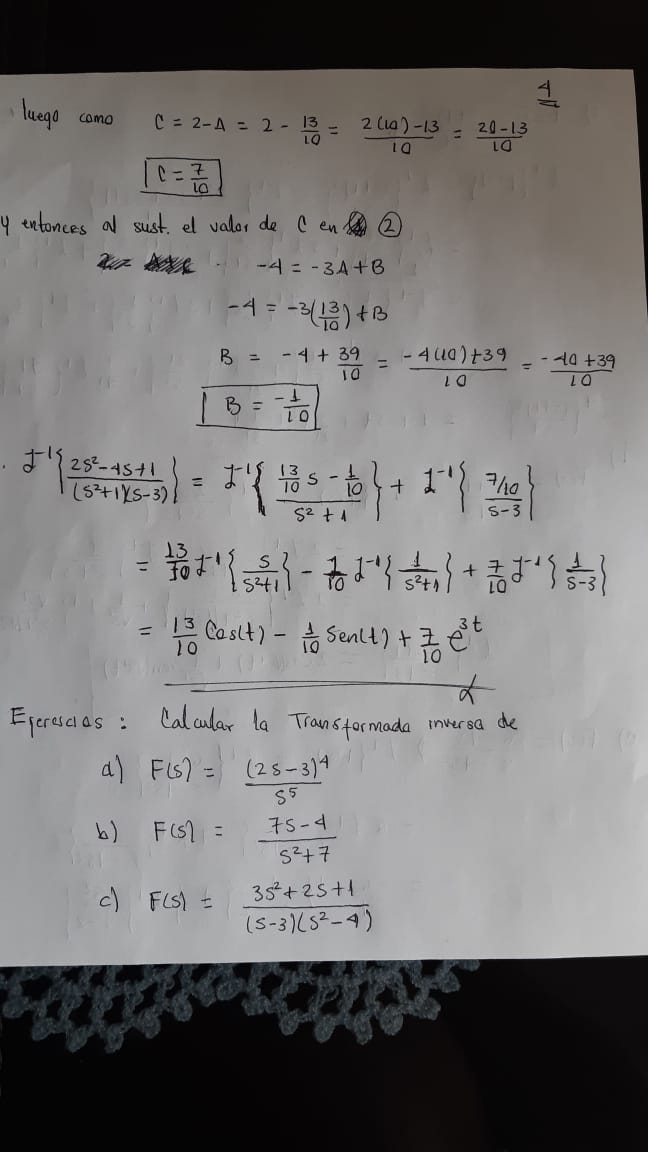 4
luego como C = 2-A = 2 - 13/10 = 2(10)-13/10 = 20-13/10
C = 7/10
Y entonces al sust. el valor de C en ②
-4 = -3A+B
-4 = -3(13/10)+B
B = -4 + 39/10 = -4(10)+39/10 = -40+39/10
B = -1/10
. L⁻¹{2s²-4s+1/(s²+1)(s-3)} = L⁻¹{13/10 s - 1/10/s²+1} + L⁻¹{7/10/s-3}
= 13/10 L⁻¹{s/s²+1} - 1/10 L⁻¹{1/s²+1} + 7/10 L⁻¹{1/s-3}
= 13/10 Cos(t) - 1/10 Sen(t) + 7/10 e³ᵗ
Ejerescios : Calcular la Transformada inversa de
a) F(s) = (2s-3)⁴/s⁵
b) F(s) = 7s-4/s²+7
c) F(s) = 3s²+2s+1/(s-3)(s²-4)